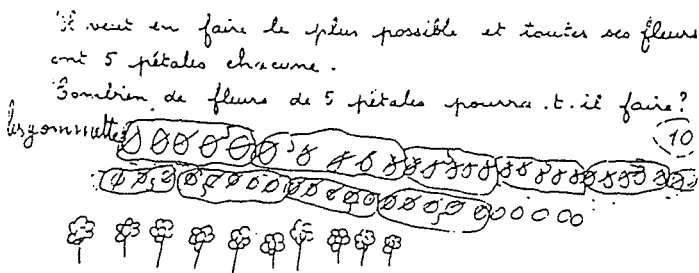 Il veut en faire le plus possible et toutes ses fleurs
ont 5 pétales chacune.
Combien de fleurs de 5 pétales pourra.t.il faire?
les gommettes
10